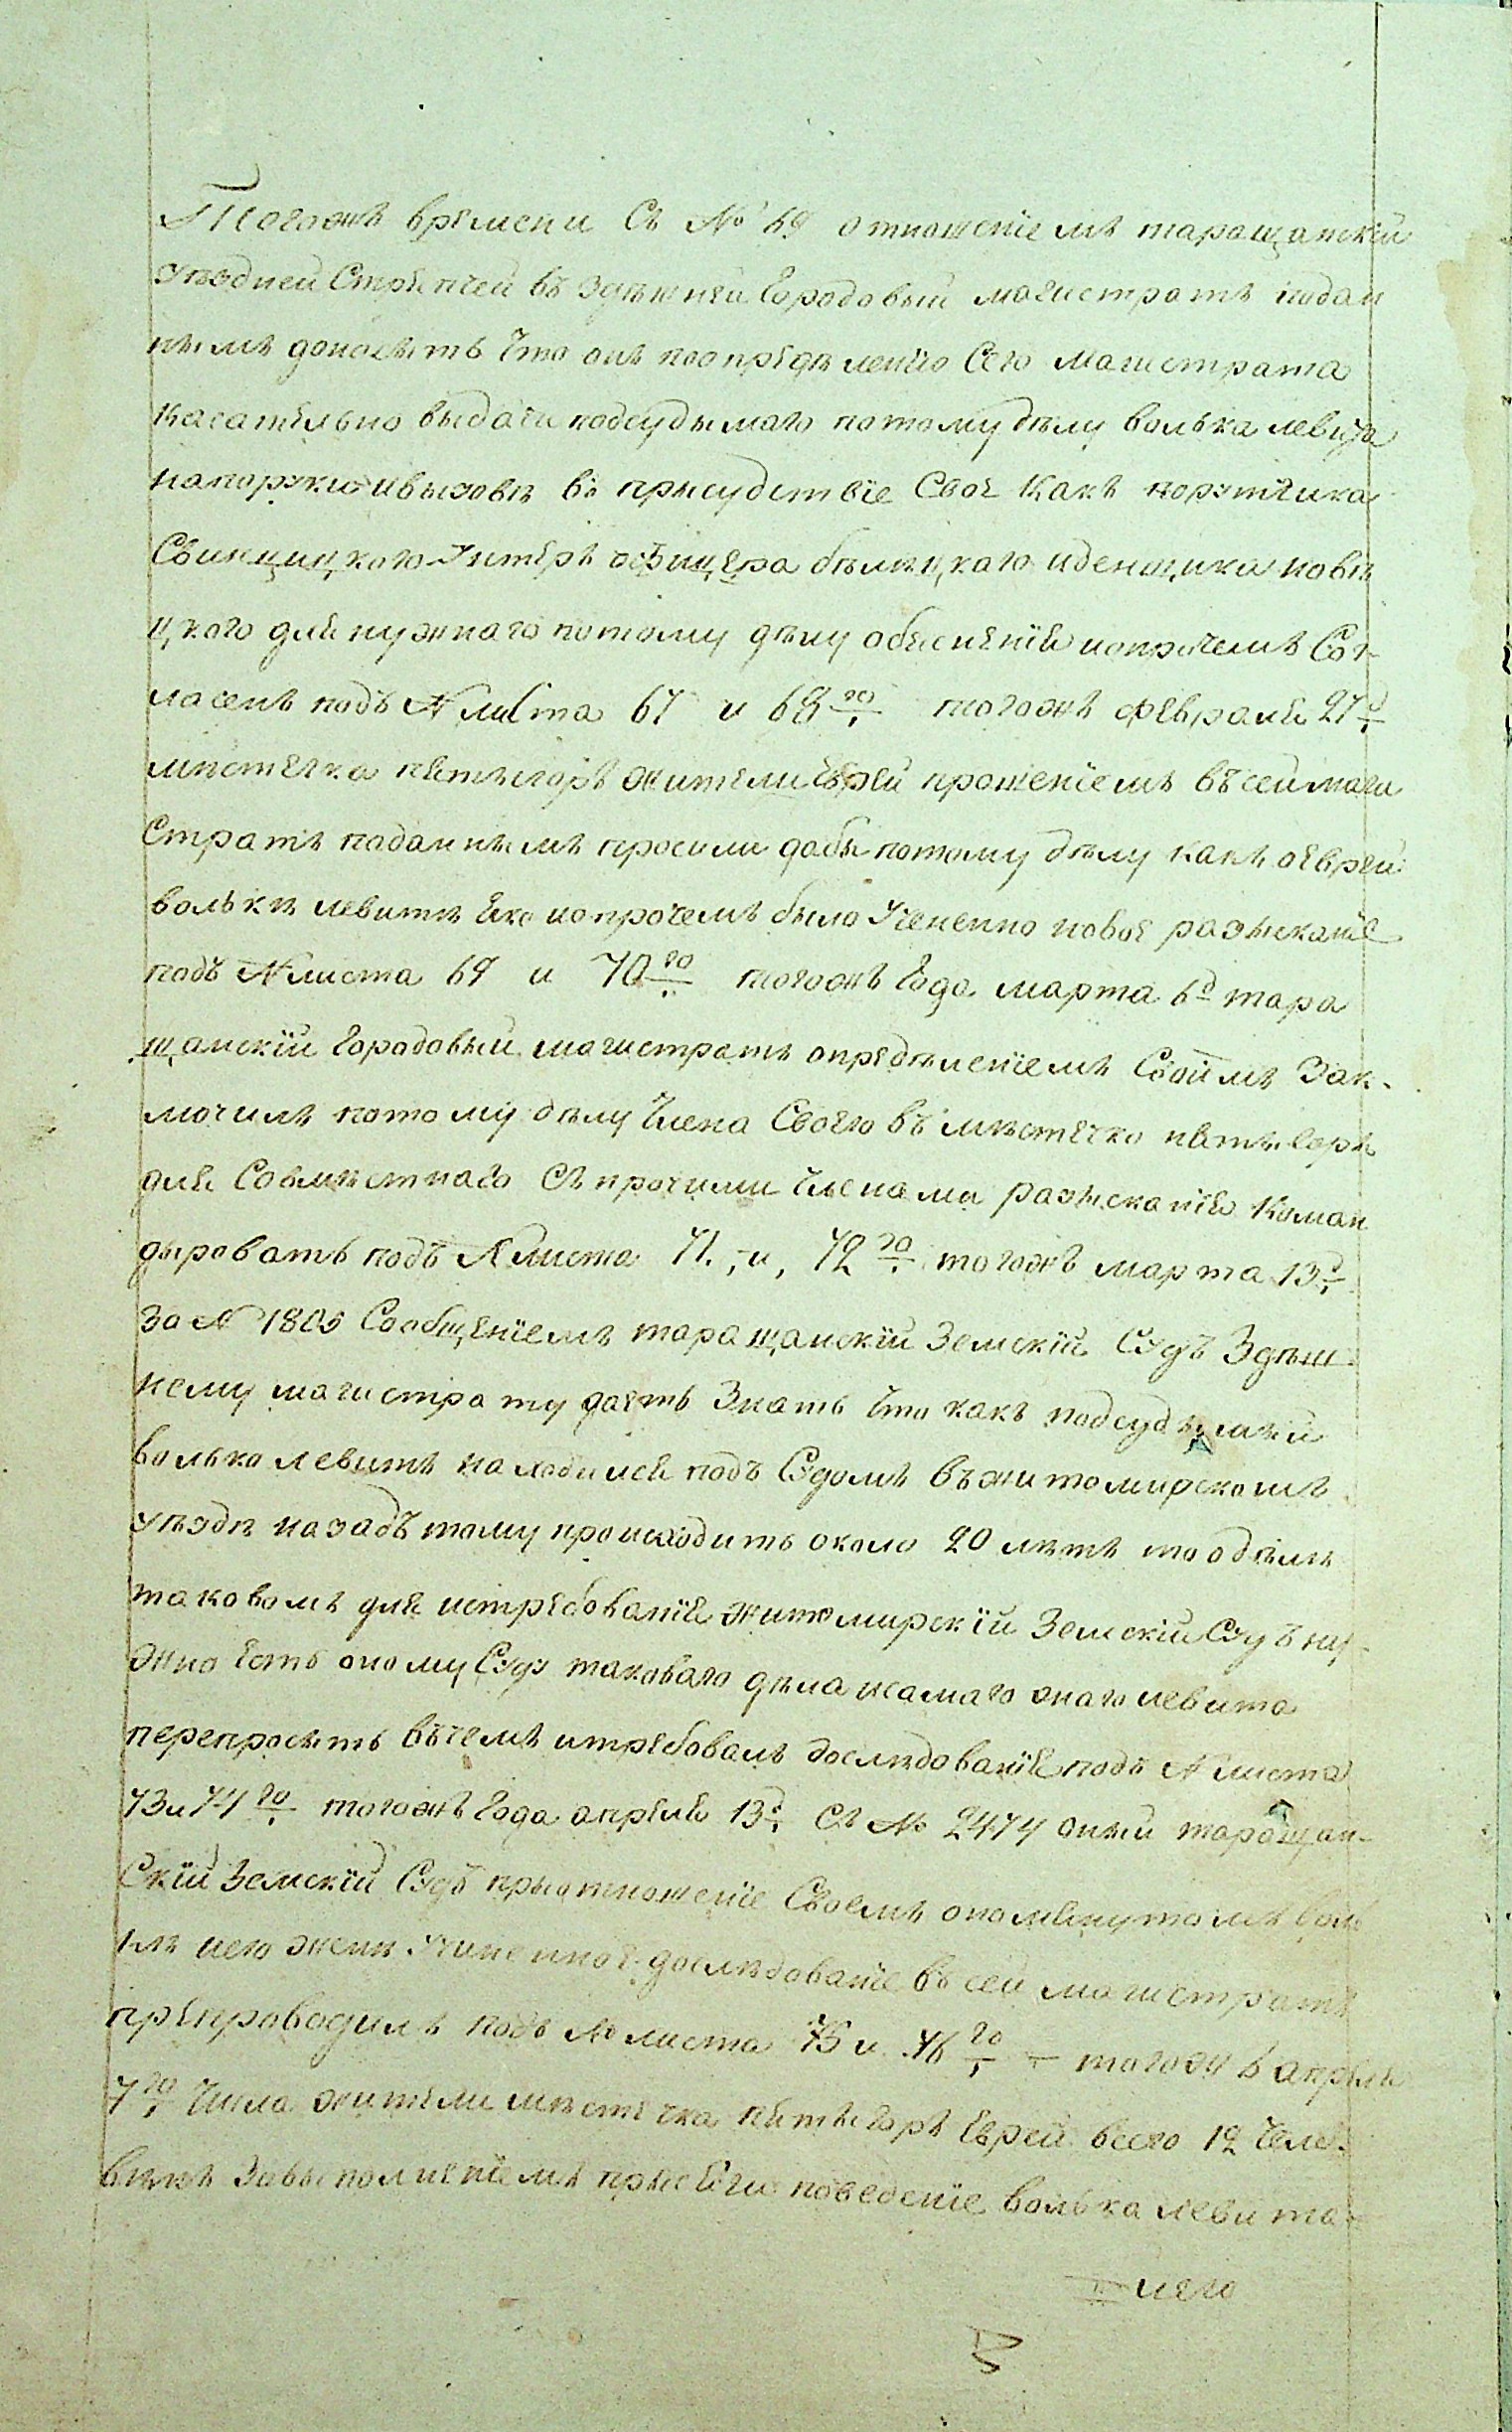 Тогожъ времени Съ № 69 отношениіемъ таращанскій
уѣздней Стряпчей въ здѣшней Городовый магистратъ подан
нымъ доноситъ Что онъ поопредѣленію Сего магистрата
касательно выдачи подсудымаго потому дѣлу волька левита
напоруки ивызовѣ въ прысудствіе Свое Какъ порутчика
Свинцицкого Унтеръ офицера бѣлецкаго иденщика новѣ
цкого для нужнаго потому дѣлу объясненія ипрочемъ Сог-
ласенъ подъ № листа 67 и 68го тогожъ февраля 27д
мѣстечка пятыгоръ жители Еврей прошеніемъ въсей маги
Стратъ поданнымъ просили дабы потому дѣлу какъ оеврей
волькѣ левитѣ яко ипрочемъ было Учененно новое разыканіе
подъ № листа 69 и 70го тогожъ Года марта 6д тара
щанскій Городовый магистратъ опредѣленіемъ Своимъ Зак-
лючилъ потому дѣлу Члена Своего въ мѣстечко пятыгоры
для Совмѣстнаго Съ прочими Членами разысканія Коман
дыровать подъ № листа 71. и, 72го тогожъ марта 13д
за № 1803 Сообщеніемъ таращанскій Земскій Судъ Здѣш
нему магистрату даетъ Знать Что какъ подсудымый
волько левитъ находился подъ Судомъ въжитомирскомъ
уѣздѣ назадъ тому происходитъ около 20 лѣтъ то одѣлѣ
таковомъ для истребованія житомирскій Земскій Судъ ну-
жно Есть оному Суду таковаго дѣла исамаго онаго левита
перепросить въчемъ итребовалъ дослѣдованіе подъ № листа
73 и 74го тогожъ Года апреля 13д Съ № 2474 оный таращан-
Скій Земскій Судъ прыотношеніе Своемъ опомянутомъ воль
кѣ иего жени Учиненное дослѣдованіе въ сей магистратъ
препроводилъ подъ № листа 75 и 76го — тогожъ апреля
7го Числа жители мѣстечка пятыгоръ Еврей всего 12 Чело-
вѣкъ Завыполненіемъ прысяги поведеніе волька левита
иего